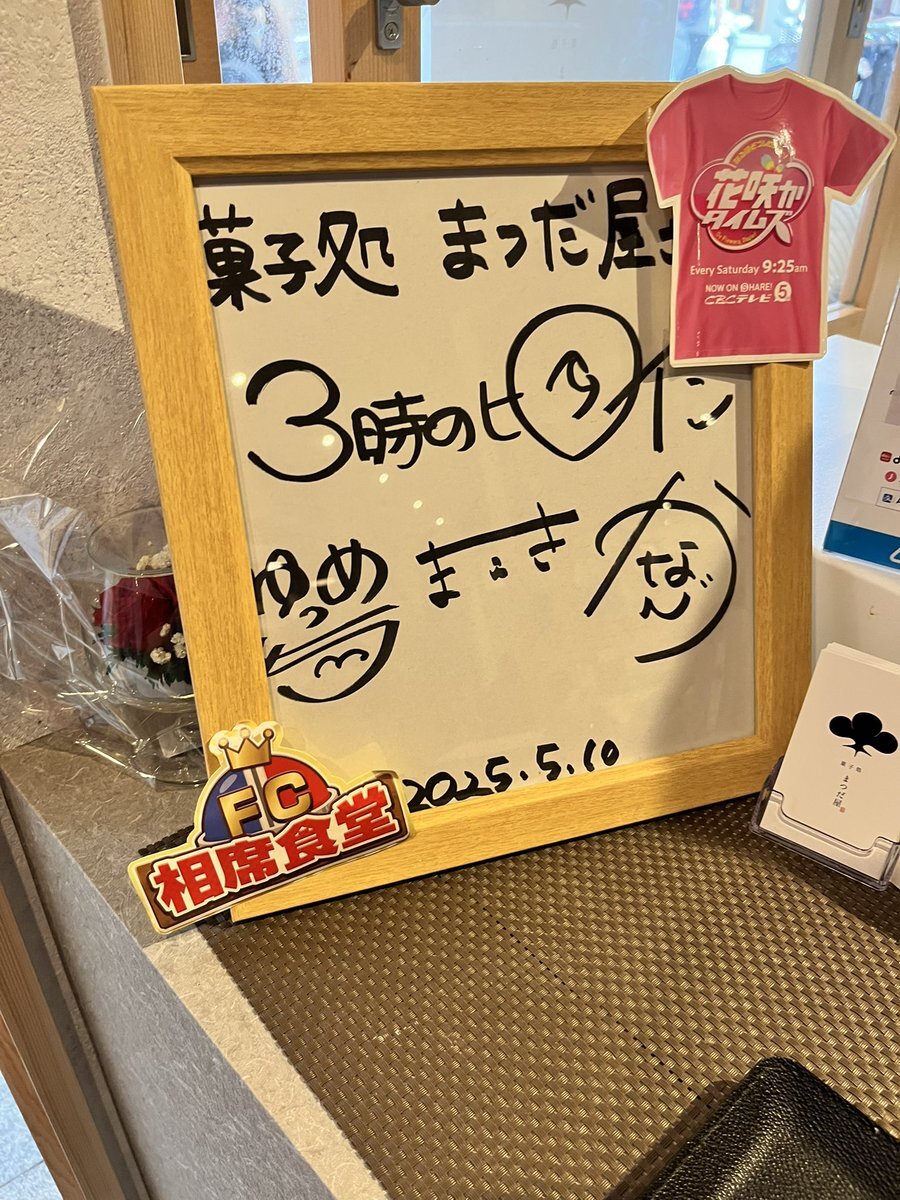 菓子処 まつだ屋
3時のヒロイン
ゆめっち まき かなで
2025.5.10
花咲か
タイムズ
Every Saturday 9:25am
NOW ON SHARE!
CBCテレビ 5
FC
相席食堂
菓子処
まつだ屋